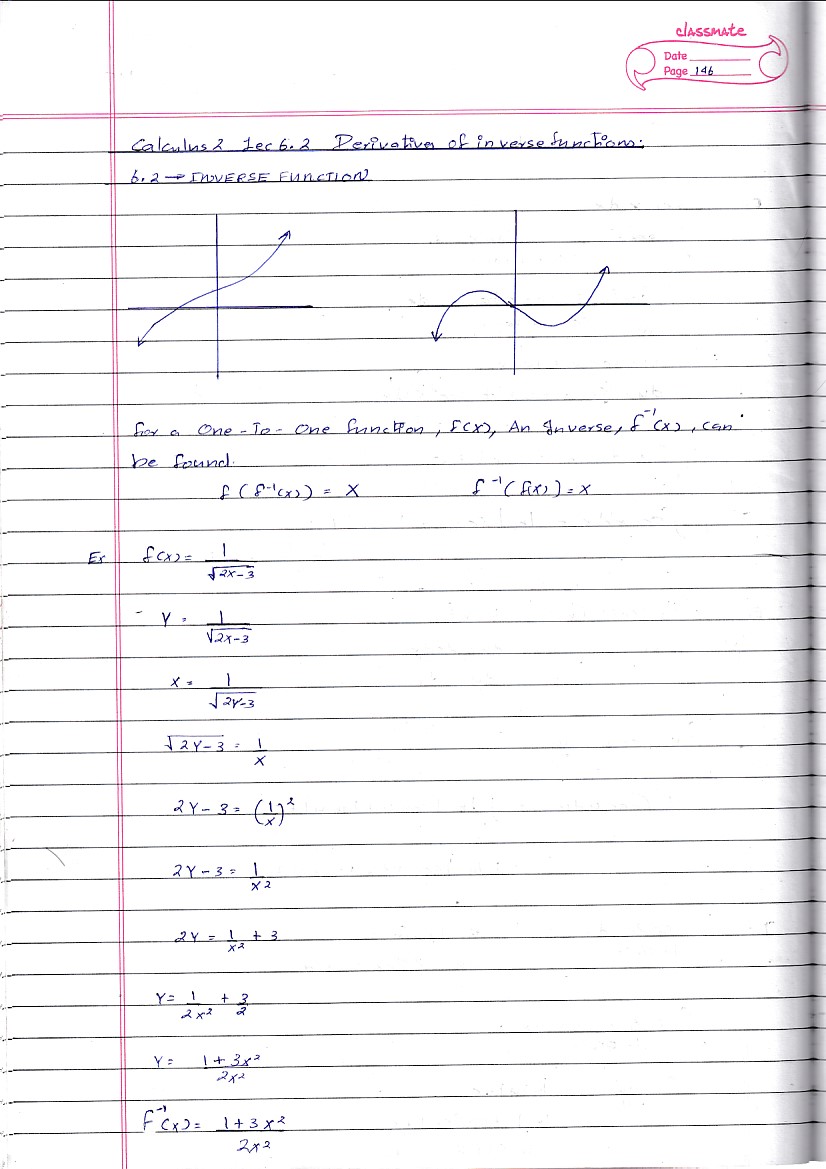 classmate
Date
Page 146
Calculus 2 Lec 6.2 Derivatives of inverse functions:
6.2 → INVERSE FUNCTION
for a One-To-One function, f(x), An Inverse, f⁻¹(x), can
be found.
f(f⁻¹(x)) = X f⁻¹(f(x)) = x
Ex f(x) = 1/√(2x-3)
Y = 1/√(2x-3)
x = 1/√(2Y-3)
√(2Y-3) = 1/x
2Y-3 = (1/x)²
2Y-3 = 1/x²
2Y = 1/x² + 3
Y = 1/2x² + 3/2
Y = (1+3x²)/2x²
f⁻¹(x) = (1+3x²)/2x²